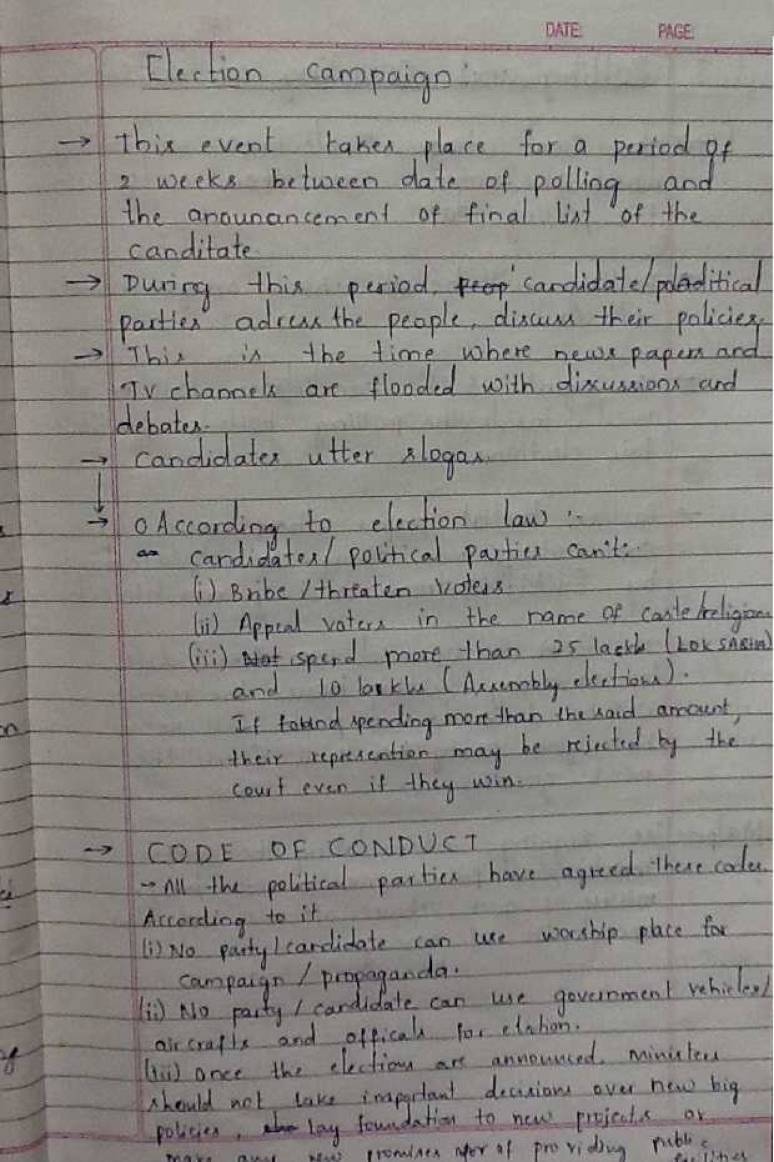 DATE: PAGE:
Election campaign:
→ This event takes place for a period of
2 weeks between date of polling and
the anounancement of final list of the
canditate.
→ During this period, candidate/political
parties adress the people, discuss their policies.
→ This is the time where news papers and
TV channels are flooded with discussions and
debates.
→ candidates utter slogas.
→ o According to election law :-
candidates/ political parties can't:
(i) Bribe / threaten voters
(ii) Appeal voters in the name of caste/religion.
(iii) Not spend more than 25 lackh (LOK SABHA)
and 10 lackhs (Assembly elections).
If found spending more than the said amount,
their represention may be rejected by the
court even if they win.
→ CODE OF CONDUCT
→ All the political parties have agreed these codes.
According to it
(i) No party/candidate can use worship place for
campaign / propaganda.
(ii) No party / candidate can use government vehicles/
aircrafts and officals for elation.
(iii) once the elections are announced, ministers
should not take important decisions over new big
policies, lay foundation to new projects or
make any new promises of providing public
facilities